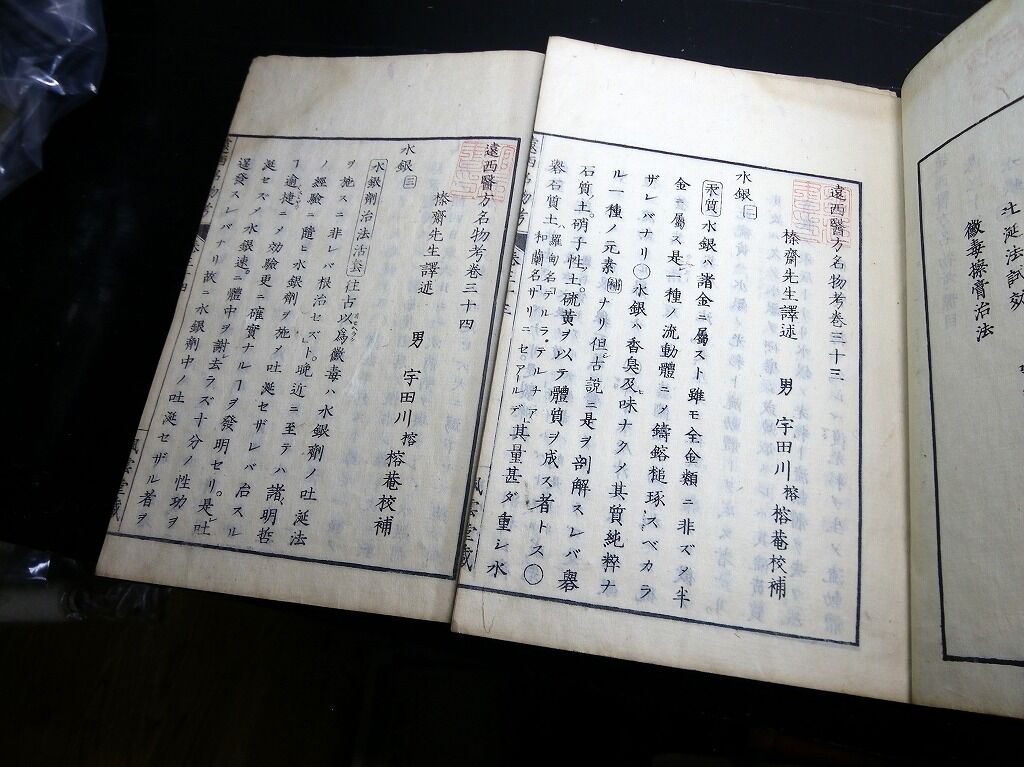 吐涎法試效
黴毒擦膏治法
遠西醫方名物考卷三十三
榛齋先生譯述　男　宇田川榕　榕菴校補
水銀 二
汞質 水銀ハ諸金ニ屬スト雖モ全金類ニ非ズノ半
金ニ屬ス是一種ノ流動體ニメ鑄鎔槌琢スベカラ
ザレバナリ〇水銀ハ香臭及味ナクメ其質純粹ナ
ル一種ノ元素ナリ但古說ニ是ヲ剖解スレバ礜
石質土硝子性土硫黃ヲ以テ體質ヲ成ス者トス〇
礜石質土ハ羅甸名テルラ・テルチア和蘭名ザリニセアールデ其量甚ダ重シ水
風雲堂藏
遠西醫方名物考卷三十四
榛齋先生譯述　男　宇田川榕　榕菴校補
水銀 三
水銀劑治法沽嚢 往古以為黴毒ハ水銀劑ノ吐涎法
ヲ施スニ非レバ根治セズト晚近ニ至テハ諸明哲
ノ經驗ニ隨ヒ水銀劑ヲ施メ吐涎セザレバ治スル
ヿ適捷ニメ効驗更ニ確實ナルヿヲ發明セリ是吐
涎セズメ水銀速ニ體中ヲ謝去ラズ十分ノ性功ヲ
逞發スレバナリ故ニ水銀劑中ノ吐涎セザル者ヲ
風雲堂藏